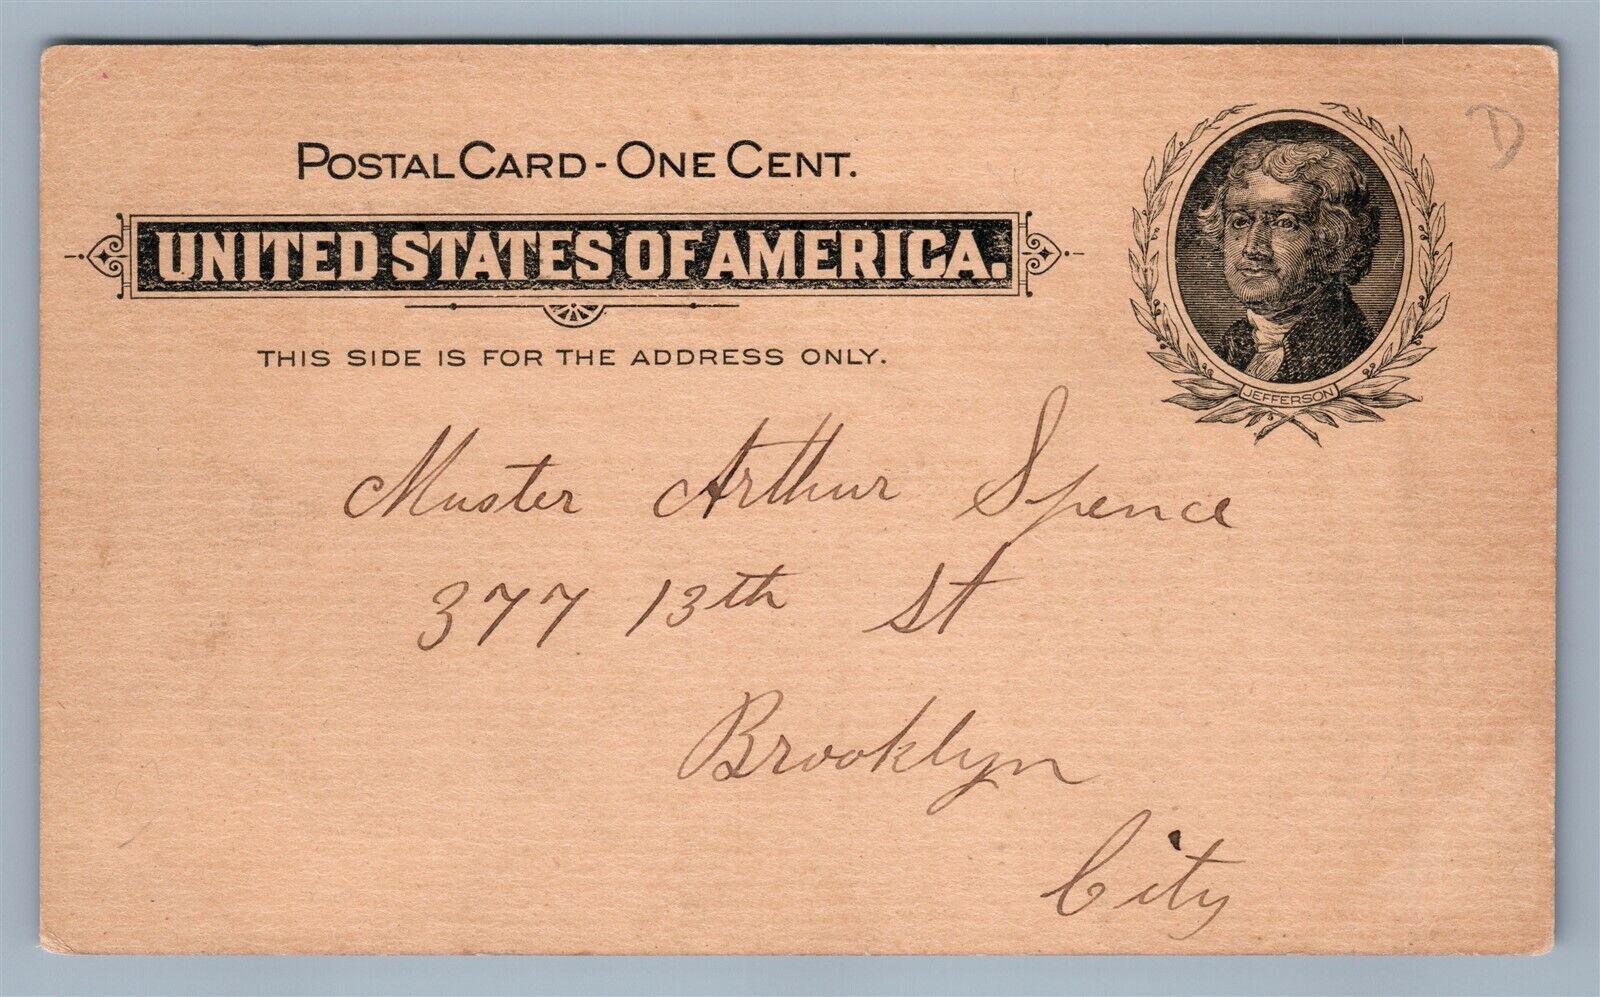 D
POSTAL CARD - ONE CENT.
UNITED STATES OF AMERICA.
THIS SIDE IS FOR THE ADDRESS ONLY.
JEFFERSON
Master Arthur Spence
377 13th St
Brooklyn
City